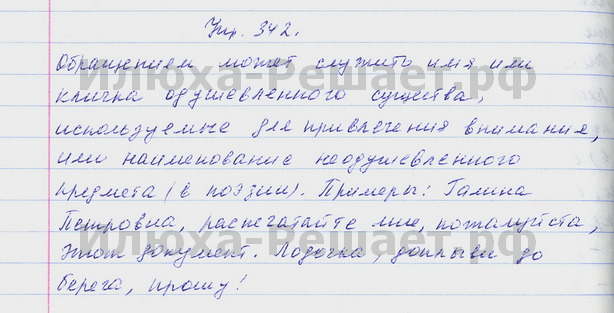 Упр. 342.
Обращением может служить имя или
кличка одушевленного существа,
используемые для привлечения внимания,
или наименование неодушевленного
предмета (в поэзии). Примеры: Галина
Петровна, распечатайте мне, пожалуйста,
этот документ. Лодочка, доплыви до
берега, прошу!
Илюха-Решает.рф
Илюха-Решает.рф